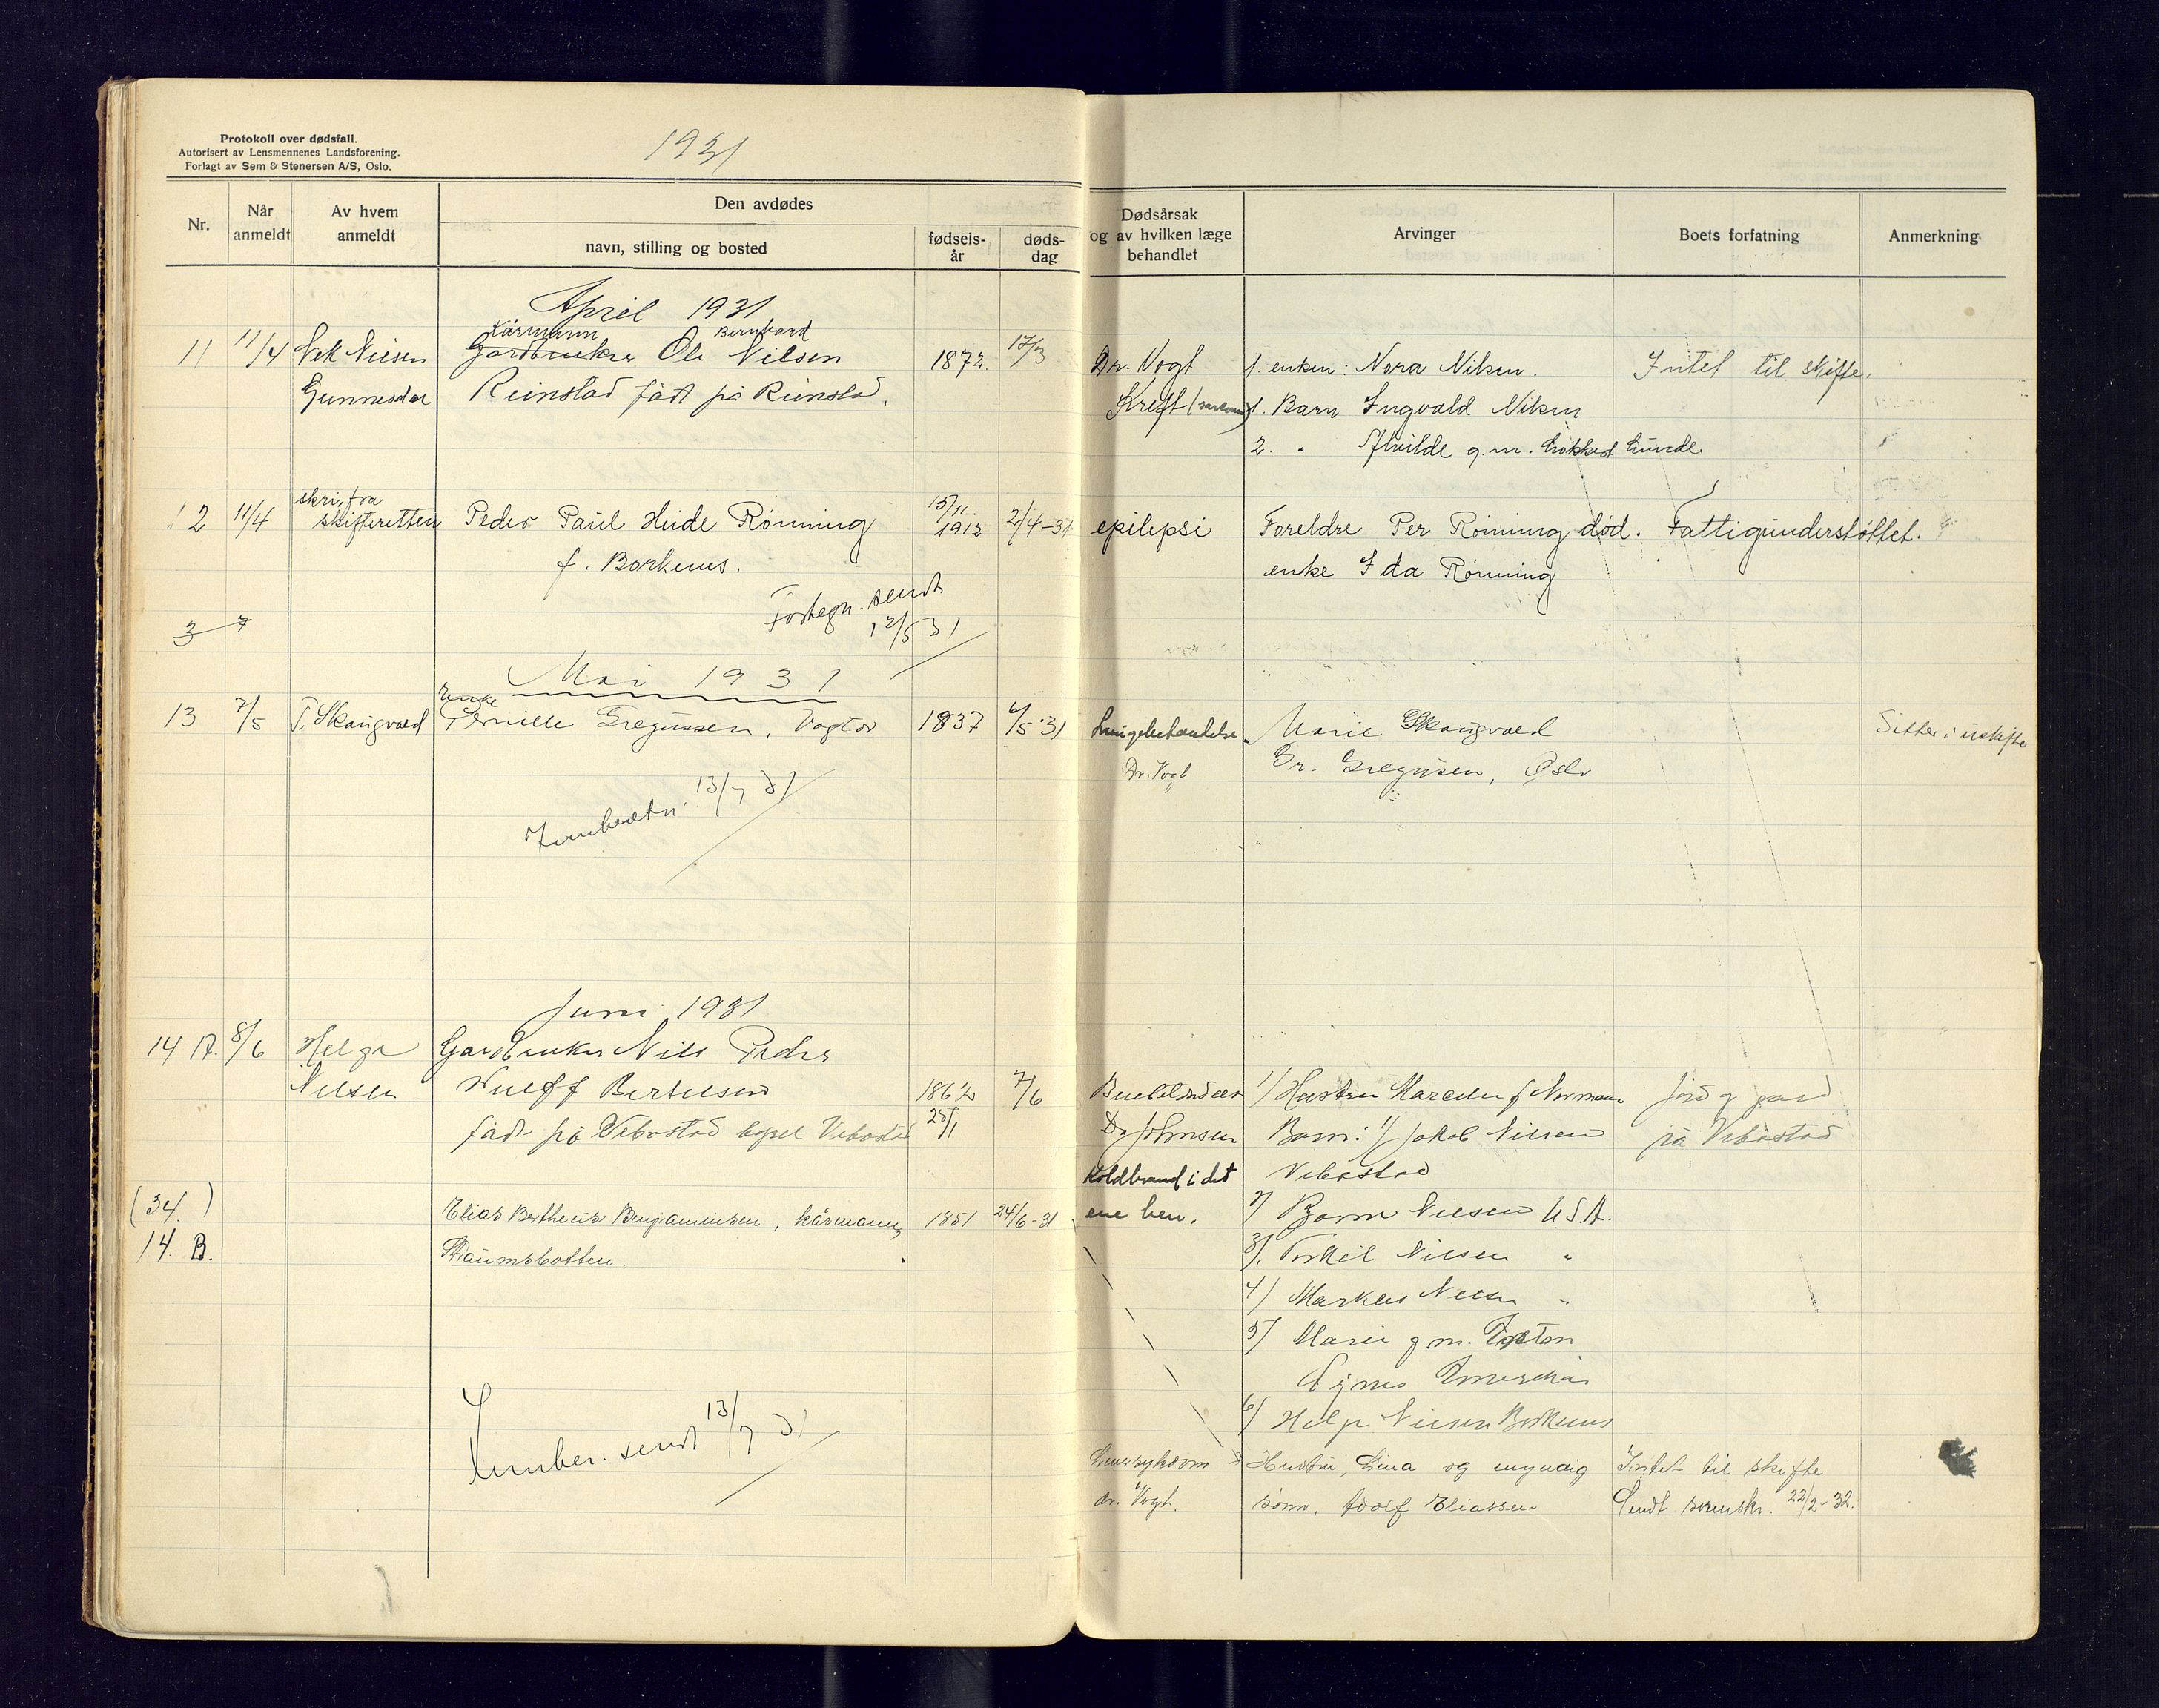 Protokoll over dødsfall.
Autorisert av Lensmennenes Landsforening.
Forlagt av Sem & Stenersen A/S, Oslo.
1931
Nr.
Når anmeldt
Av hvem anmeldt
Den avdødes
navn, stilling og bosted
fødsels-
år
døds-
dag
Dødsårsak
og av hvilken læge
behandlet
Arvinger
Boets forfatning
Anmerkning
April 1931
Kårmann Bernhard
11 11/4 Nielsen Gardbruker Ole Nilsen 1872. 17/3 Dr. Vogt 1. enken: Nora Nilsen. Intet til skifte.
Gunnesdal Reinstad født på Reinstad. Kreft 1. Barn Ingvald Nilsen
2. " g.m. Lunde.
skri. fra 15/11.
12 11/4 skifteretten Peder Paul Heide Rönning 1912 2/4-31 epilepsi Foreldre Per Rönning död. Fattigunderstöttet.
f. Borkenes. enke Ida Rönning
Fortegn. sendt
12/5 31
3 7
Mai 1931
enke
13 7/5 T. Skaugvold Pernille Gregussen, 1837 6/5-31 Marie Skaugvold Sitter i uskifte
Dr. Vogt Gr. Gregusen, Oslo
13/7 31
Juni 1931
14 A. 8/6 Helge Gardbruker Nils Peder
Nilsen Wulff Bertelsen 1862 7/6 1/ Hustru f Normann jord g gard
født på Vebostad bopel Vebostad 25/1 Dr Johnsen Barn: 1/ Jakob Nilsen på Vebostad
Koldbrand i det Vebostad
(34.) Elias Bertheus Benjaminsen, kårmann, 1851 24/6-31 ene ben. 2/ Nilsen U.S.A.
14. B. Straumsbotten. 3/. Torkil Nilsen "
4/ Markus Nilsen "
5/ Marie g m. Torsten
6/ Helge Nilsen Borkenes
sendt 13/7 31
Hustru, Lina og myndig Intet til skifte
dr. Vogt. sönn, Adolf Eliassen Sendt sorenskr. 22/2-32.